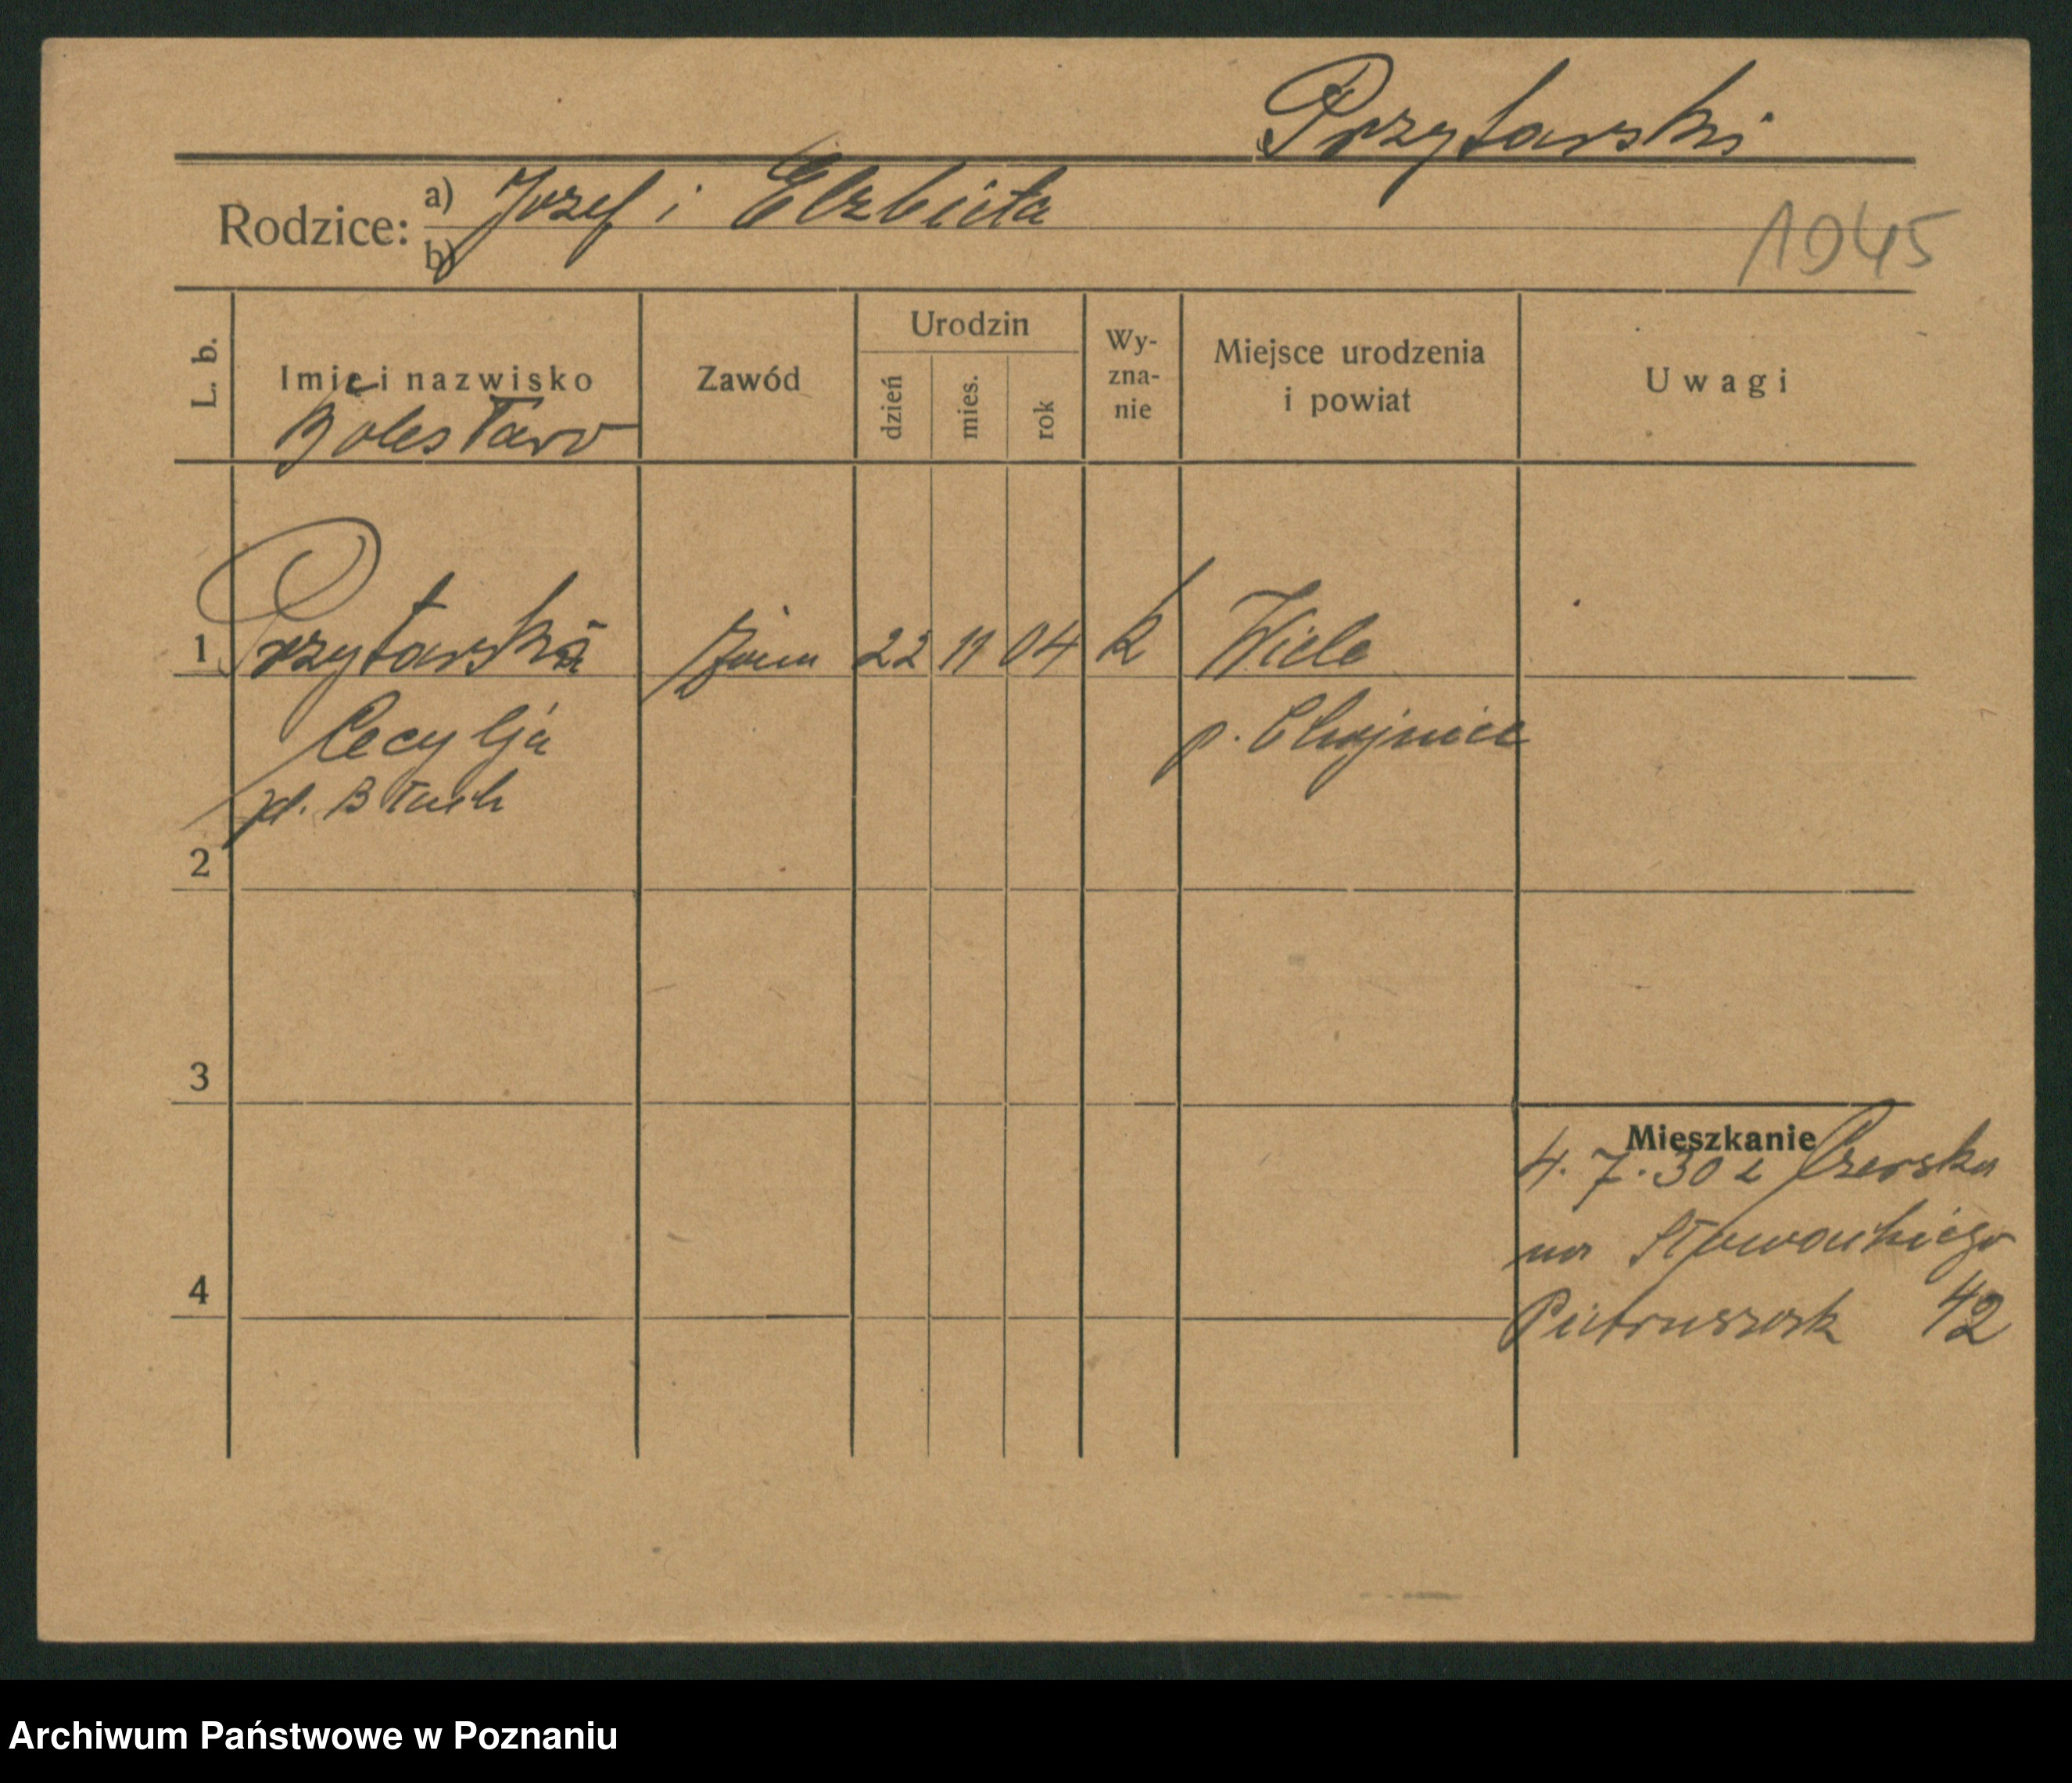 Przytarski
Rodzice: a) Jozef i Elzbieta
b)
1945
L. b.
Imię i nazwisko
Zawód
Urodzin
dzień
mies.
rok
Wy-
zna-
nie
Miejsce urodzenia
i powiat
Uwagi
Bolesław
1 Przytarska 22 11 04 k Wiele
Cecylja p. Chojnice
2
3
Mieszkanie
4. 7. 30 z Czerska
na Słowackiego
4
42
Archiwum Państwowe w Poznaniu